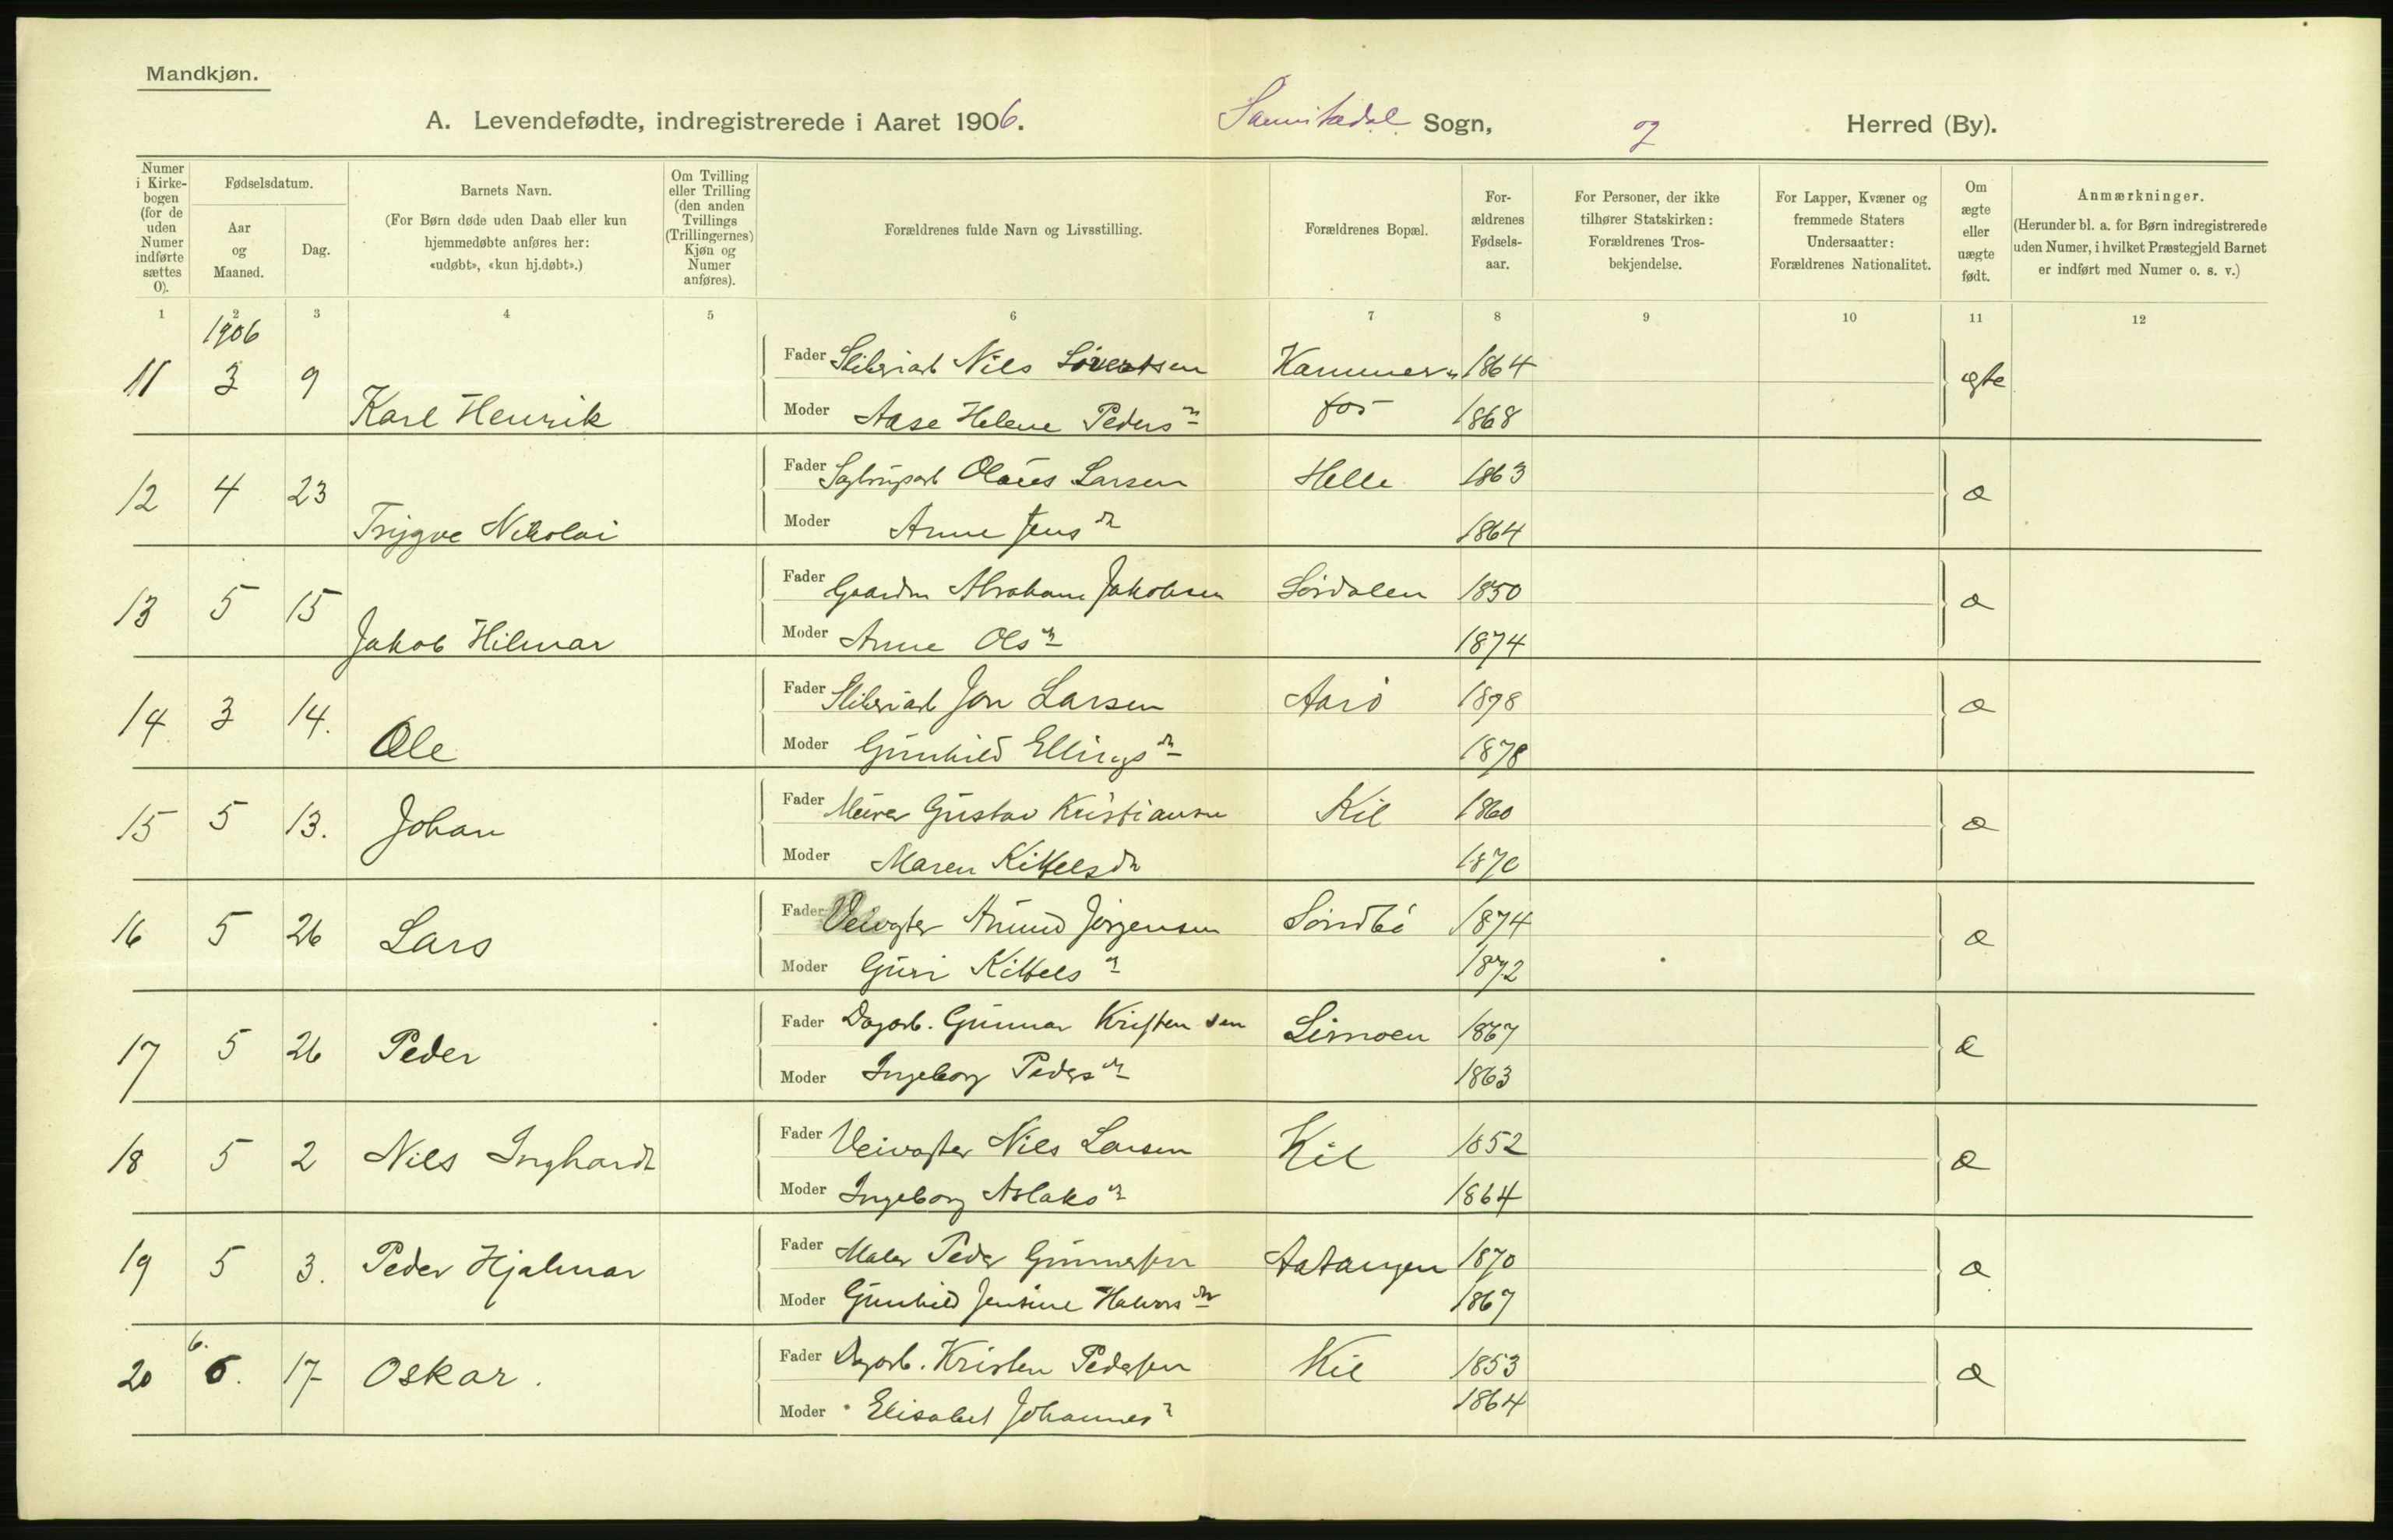 Mandkjøn.
A. Levendefødte, indregistrerede i Aaret 1906. Sannikedal Sogn, og Herred (By).
Numer i Kirke-bogen (for de uden Numer indførte sættes 0).
Fødselsdatum.
Aar og Maaned.
Dag.
Barnets Navn.
(For Børn døde uden Daab eller kun
hjemmedøbte anføres her:
«udøbt», «kun hj.døbt».)
Om Tvilling eller Trilling (den anden Tvillings (Trillingernes) Kjøn og Numer anføres).
Forældrenes fulde Navn og Livsstilling.
Forældrenes Bopæl.
For-ældrenes Fødsels-aar.
For Personer, der ikke
tilhører Statskirken:
Forældrenes Tros-
bekjendelse.
For Lapper, Kvæner og
fremmede Staters
Undersaatter:
Forældrenes Nationalitet.
Om ægte eller uægte født.
Anmærkninger.
(Herunder bl. a. for Børn indregistrerede
uden Numer, i hvilket Præstegjeld Barnet
er indført med Numer o. s. v.)
1 2 3 4 5 6 7 8 9 10 11 12
1906
11 3 9 Karl Henrik Fader Sliberiarb Nils Sivertsen Kammer- 1864 ægte
Moder Aase Helene Peders dr fos 1868
12 4 23 Trygve Nikolai Fader Olaves Larsen Helle 1863 æ
Moder Anne Jens dr 1864
13 5 15 Jakob Hilmar Fader Gaardm Abraham Jakobsen Sørdalen 1850 æ
Moder Anne Ols dr 1874
14 3 14. Ole Fader Sliberiarb Jon Larsen Aarø 1878 æ
Moder Gunhild Ellings dr 1878
15 5 13. Johan Fader Murer Gustav Kristiansen Kil 1860 æ
Moder Maren Kittelsdr 1870
16 5 26 Lars Fader Veivogter Anund Jørgensen Søndbø 1874 æ
Moder Guri Kittels dr 1872
17 5 26 Peder Fader Dagarb. Gunnar Kristensen Limoen 1867 æ
Moder Ingeborg Peders dr 1863
18 5 2 Nils Inghardt Fader Veivogter Nils Larsen Kil 1852 æ
Moder Ingeborg Aslaks dr 1864
19 5 3. Peder Hjalmar Fader Maler Peder Gunnersen Aatangen 1870 æ
Moder Gunhild Jensine Halvors dr 1867
20 6. 6. 17 Oskar. Fader Dagarb. Kristen Pedersen Kil 1853 æ
Moder Elisabet Johannes dr 1864